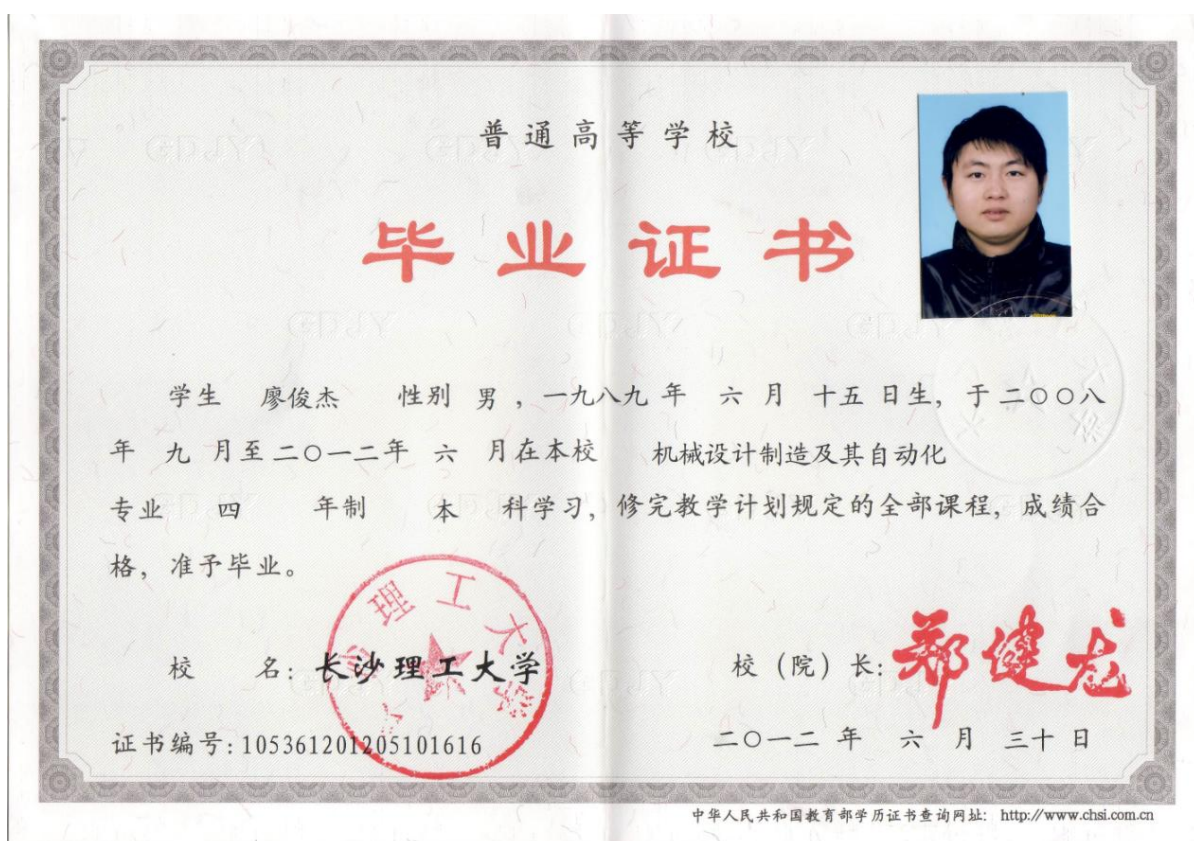 普通高等学校
毕业证书
学生 廖俊杰 性别 男 ，一九八九 年 六 月 十五 日生，于 二〇〇八
年 九 月至 二〇一二年 六 月在本校 机械设计制造及其自动化
专业 四 年制 本 科学习，修完教学计划规定的全部课程，成绩合
格，准予毕业。
理工大学
校 名：长沙理工大学
校（院）长：郑健龙
证书编号：105361201205101616
二〇一二 年 六 月 三十 日
中华人民共和国教育部学历证书查询网址： http://www.chsi.com.cn